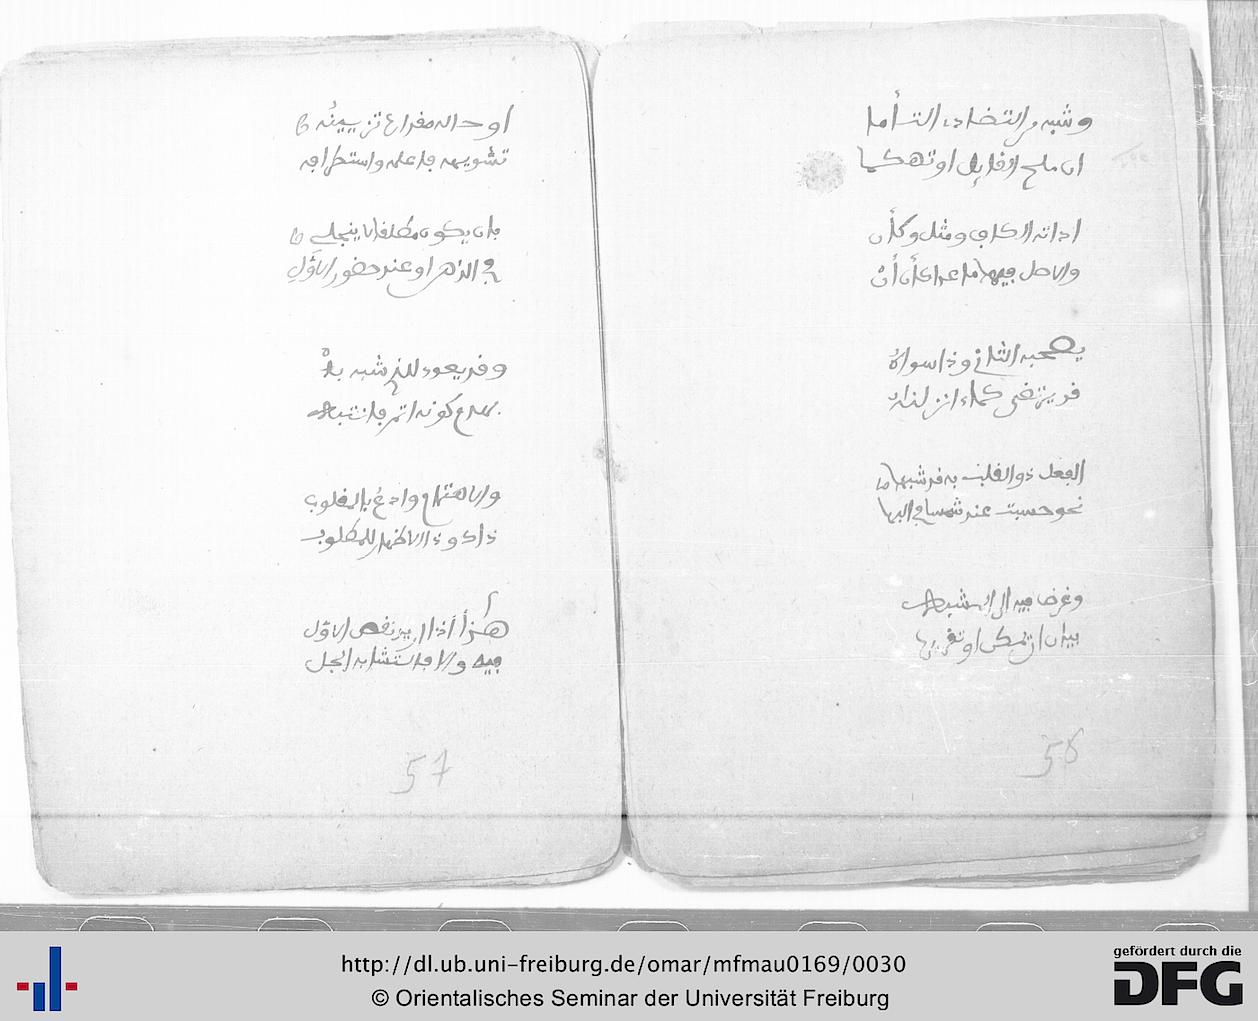 وشبه من التضاد التأما
ان ملح القايل او تهكما
اداته الكاف ومثل وكأن
والاصل فيها ما عدا كأن أن
يصحبه الثاني وذا سواه
قد يرتضى كماء انزلناه
الفعل ذو القلب به قد شبها
نحو حسبت عند شمسا في البها
وغرض فيه الى المشبه
بيان ان يمكن او تقريرها
56
او حاله مقدارع تزيينه
تشويهه فاعلمه واستطرافه
بان يكون مطلقا لا ينجلي
في الذهن او عند حضور الاول
وقد يعود للذي شبه به
كونه اتم فانتبه
والاهتمام وادع بالمقلوب
ذاك وذا الاظهار للمطلوب
هذا اذا اريد نقص الاول
فيه والا فالتشابه الجل
57
http://dl.ub.uni-freiburg.de/omar/mfmau0169/0030
© Orientalisches Seminar der Universität Freiburg
gefördert durch die
DFG